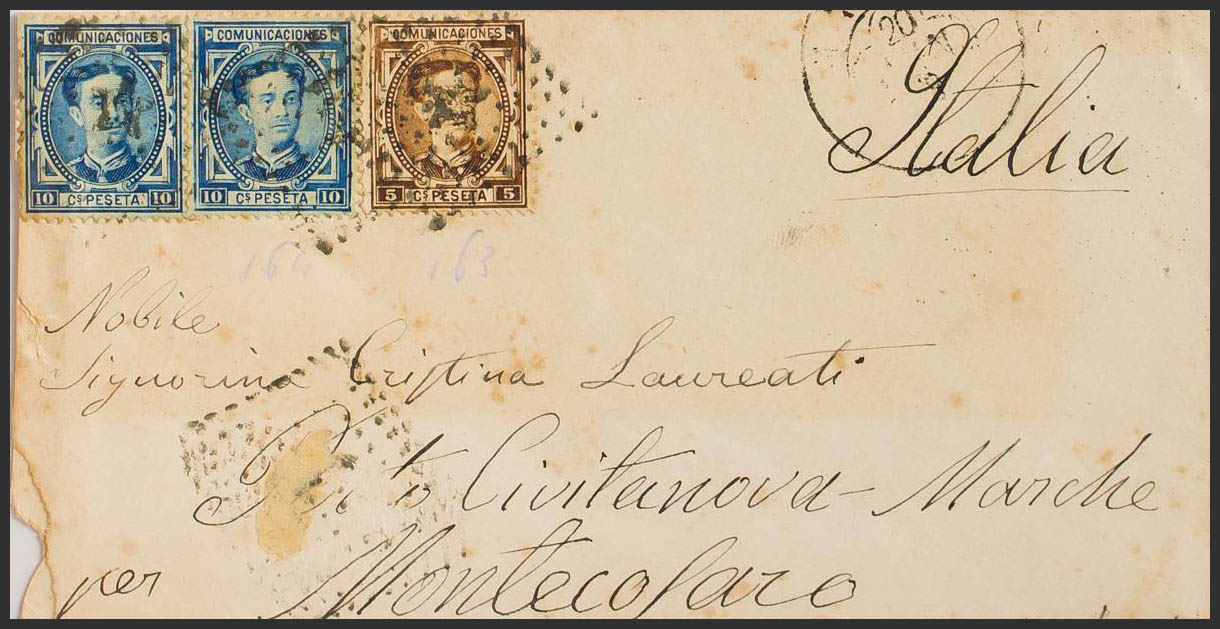 COMUNICACIONES COMUNICACIONES COMUNICACIONES
10 Cs PESETA 10 10 Cs PESETA 10 5 Cs PESETA 5
20
Italia
164 163
Nobile
Signorina Cristina Laureati
Civitanova - Marche
per Montecosaro